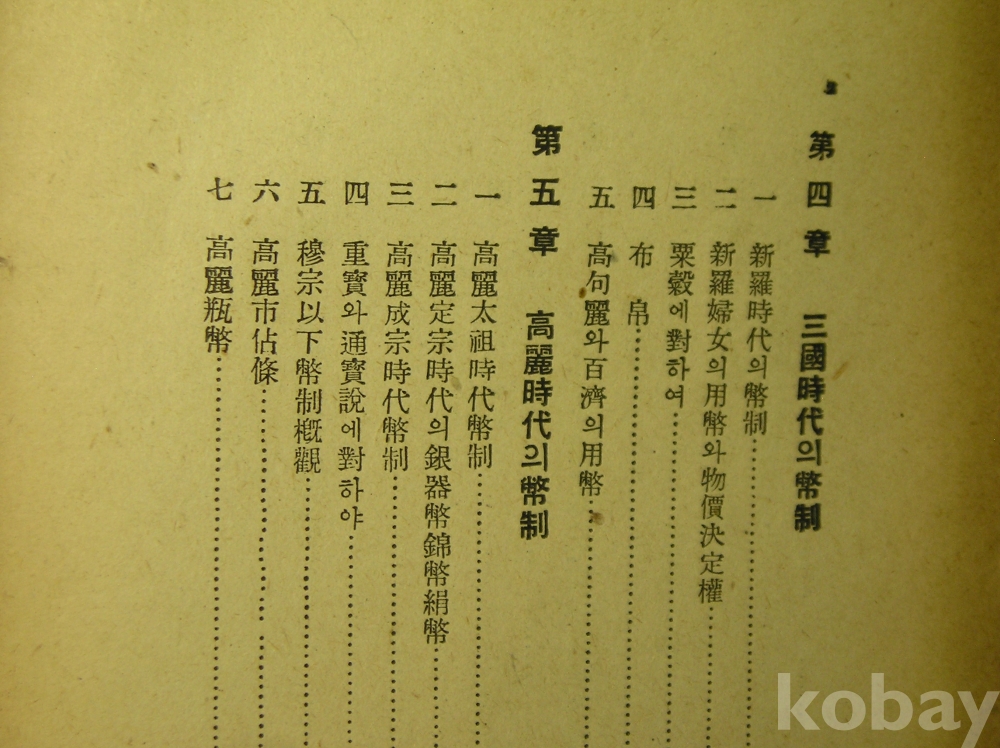 第四章 三國時代의幣制
一 新羅時代의幣制
二 新羅婦女의用幣와物價決定權
三 粟穀에對하여
四 布帛
五 高句麗와百濟의用幣
第五章 高麗時代의幣制
一 高麗太祖時代幣制
二 高麗定宗時代의銀器幣錦幣絹幣
三 高麗成宗時代幣制
四 重寶와通寶說에對하야
五 穆宗以下幣制槪觀
六 高麗市佔條
七 高麗瓶幣
kobay